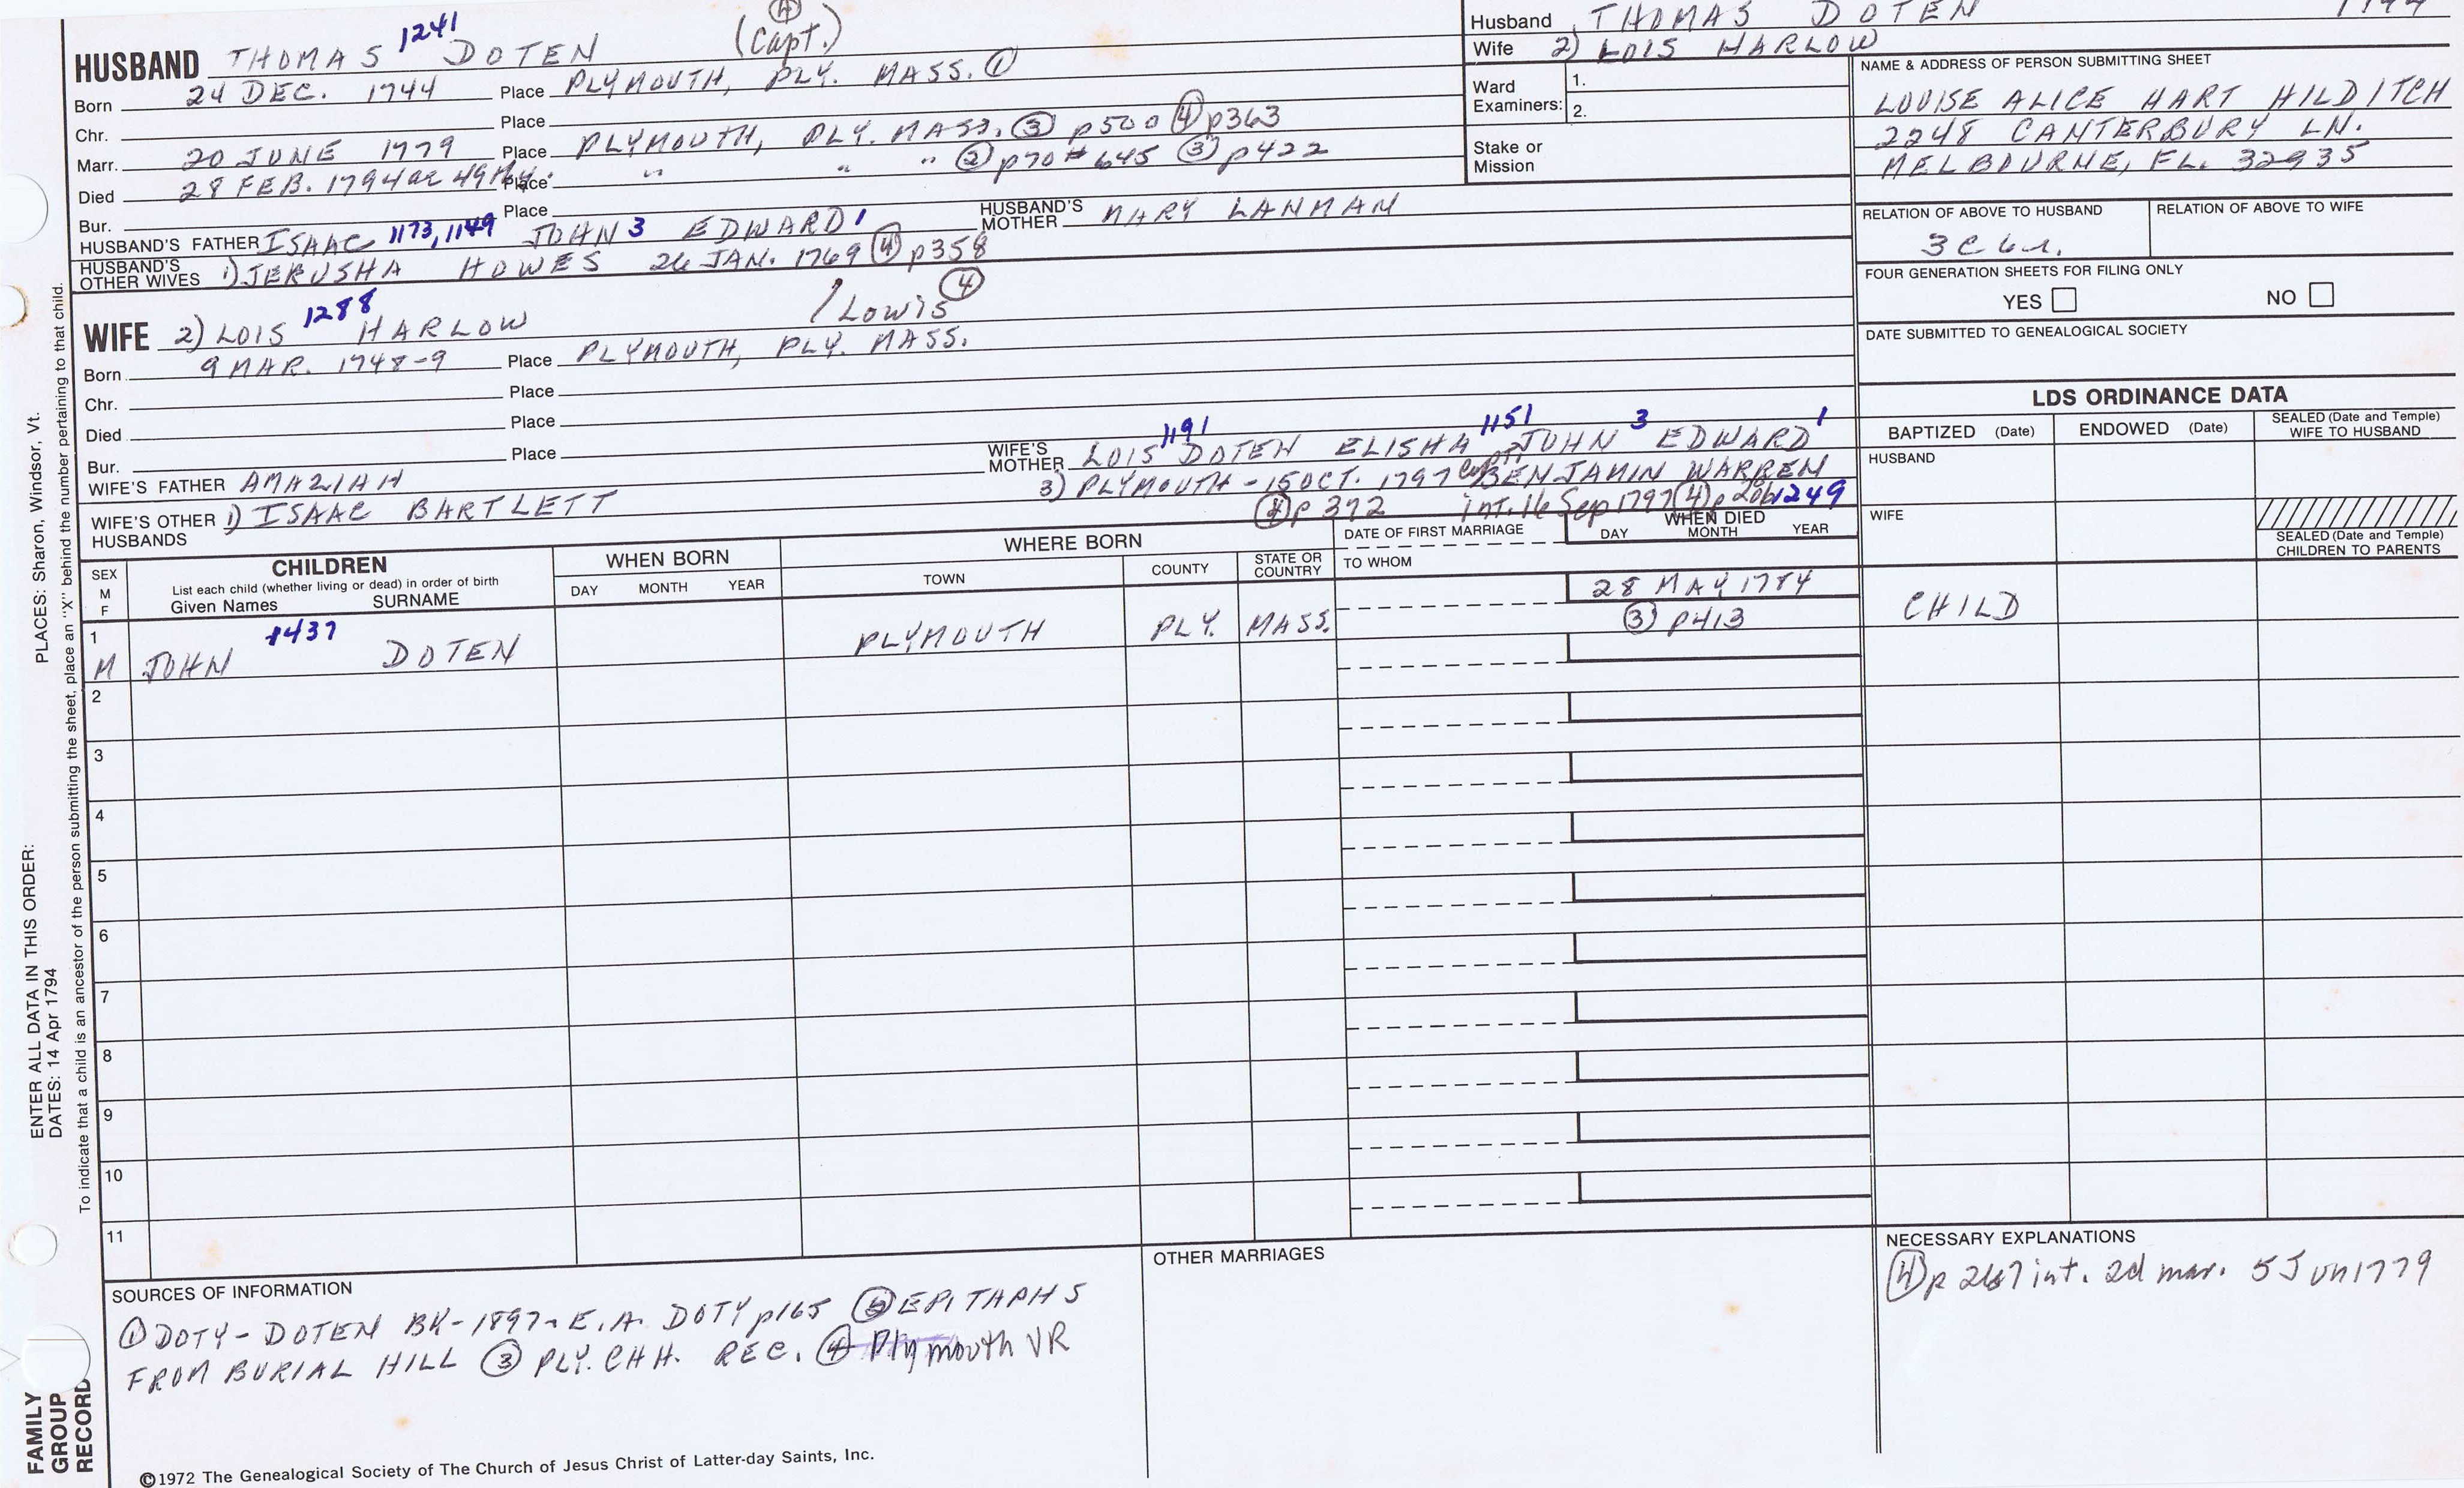 HUSBAND THOMAS 1241 DOTEN (Capt.) ④
Born 24 DEC. 1744 Place PLYMOUTH, PLY. MASS. ①
Chr. Place
Marr. 20 JUNE 1779 Place PLYMOUTH, PLY. MASS. ③ p500 ④ p363
Died 28 FEB. 1794 ae 49 Place " " ② p70 # 645 ③ p422
Bur. Place
HUSBAND'S FATHER ISAAC 1173, 1149 JOHN 3 EDWARD 1 HUSBAND'S MOTHER MARY LANMAN
HUSBAND'S OTHER WIVES 1) JERUSHA HOWES 26 JAN. 1769 ④ p358
WIFE 2) LOIS 1288 HARLOW / Lowis ④
Born 9 MAR. 1748-9 Place PLYMOUTH, PLY. MASS.
Chr. Place
Died Place
Bur. Place
WIFE'S FATHER AMAZIAH WIFE'S MOTHER LOIS 1191 DOTEN ELISHA 1151 JOHN 3 EDWARD 1
WIFE'S OTHER HUSBANDS 1) ISAAC BARTLETT 3) PLYMOUTH - 15 OCT. 1797 Capt. BENJAMIN WARREN
④ p 372 int. 16 Sep 1797 (4) p 206 1249
Husband THOMAS DOTEN
Wife 2) LOIS HARLOW
Ward Examiners: 1.
2.
Stake or Mission
NAME & ADDRESS OF PERSON SUBMITTING SHEET
LOUISE ALICE HART HILDITCH
2248 CANTERBURY LN.
MELBOURNE, FL. 32935
RELATION OF ABOVE TO HUSBAND RELATION OF ABOVE TO WIFE
3C 6
FOUR GENERATION SHEETS FOR FILING ONLY
YES NO
DATE SUBMITTED TO GENEALOGICAL SOCIETY
LDS ORDINANCE DATA
BAPTIZED (Date) ENDOWED (Date) SEALED (Date and Temple) WIFE TO HUSBAND
HUSBAND
WIFE
SEALED (Date and Temple) CHILDREN TO PARENTS
SEX M F
CHILDREN
List each child (whether living or dead) in order of birth
Given Names SURNAME
WHEN BORN
DAY MONTH YEAR
WHERE BORN
TOWN COUNTY STATE OR COUNTRY
DATE OF FIRST MARRIAGE
TO WHOM
WHEN DIED
DAY MONTH YEAR
1 M JOHN 1437 DOTEN PLYMOUTH PLY. MASS. 28 MAY 1784 CHILD
③ p413
2
3
4
5
6
7
8
9
10
11
SOURCES OF INFORMATION
① DOTY-DOTEN BK-1897-E.A. DOTY p165 ② EPITAPHS
FROM BURIAL HILL ③ PLY. CHH. REC. ④ Plymouth VR
OTHER MARRIAGES
NECESSARY EXPLANATIONS
④ p 267 int. 2d mar. 5 Jun 1779
©1972 The Genealogical Society of The Church of Jesus Christ of Latter-day Saints, Inc.
FAMILY GROUP RECORD
ENTER ALL DATA IN THIS ORDER:
DATES: 14 Apr 1794
PLACES: Sharon, Windsor, Vt.
To indicate that a child is an ancestor of the person submitting the sheet, place an "X" behind the number pertaining to that child.